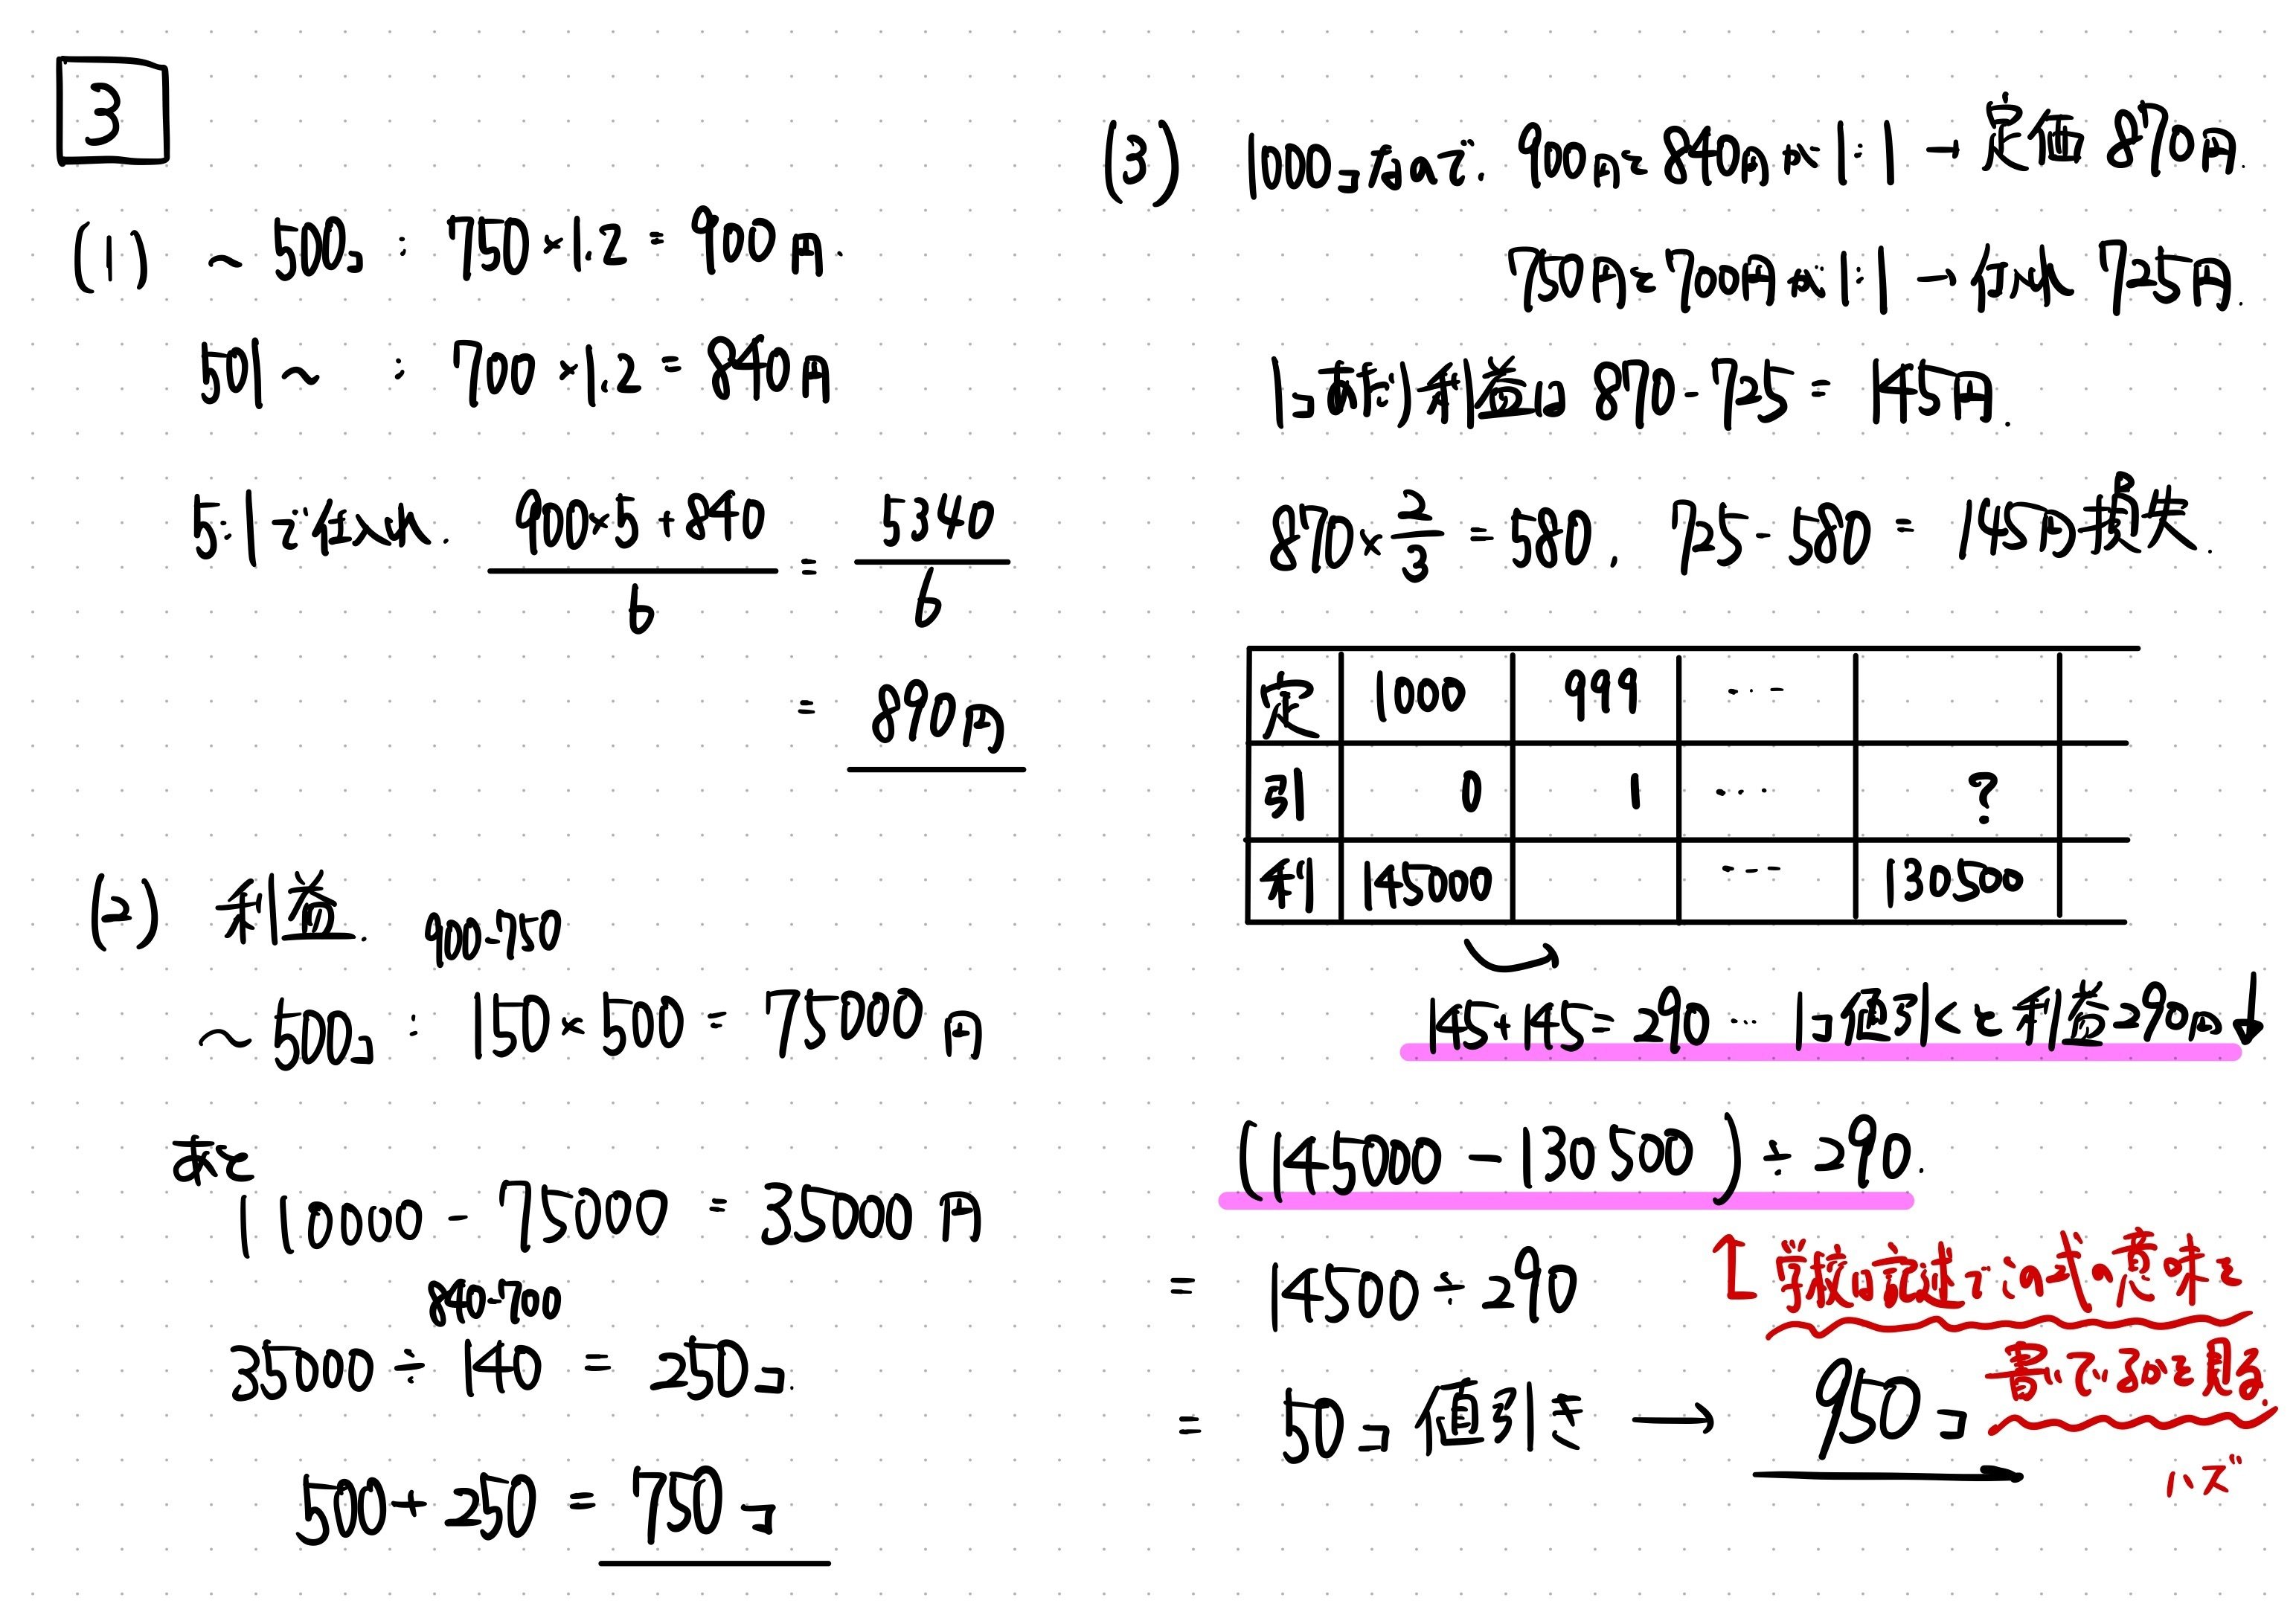 3
(1) ～500コ : 750×1.2 = 900円.
501～ : 700×1.2 = 840円
5:1で仕入れ. (900×5+840)/6 = 5340/6
= 890円
(2) 利益.
900-750
～500コ : 150×500 = 75000円
あと
110000 - 75000 = 35000円
840-700
35000÷140 = 250コ.
500+250 = 750コ
(3) 1000コなので. 900円と840円が1:1 → 定価 870円.
750円と700円が1:1 → 仕入れ 725円.
1コあたり利益は 870-725 = 145円.
870×2/3 = 580. 725-580 = 145円損失.
定 1000 999 …
引 0 1 … ?
利 145000 … 130500
145+145=290 … 1コ値引くと利益290円↓
(145000-130500)÷290.
= 14500÷290
↑学校は記述でこの式の意味を
書いているかを見る.
ハズ
= 50コ値引き → 950コ